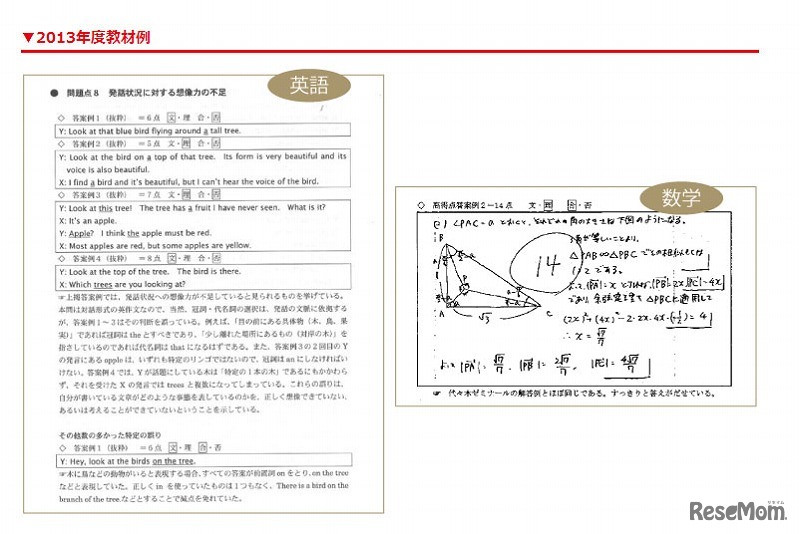 ▼2013年度教材例
英語
● 問題点8 発話状況に対する想像力の不足
◇ 答案例1（抜粋）＝6点 文・理 合・否
Y: Look at that blue bird flying around a tall tree.
◇ 答案例2（抜粋）＝5点 文・理 合・否
Y: Look at the bird on a top of that tree. Its form is very beautiful and its
voice is also beautiful.
X: I find a bird and it's beautiful, but I can't hear the voice of the bird.
◇ 答案例3（抜粋）＝7点 文・理 合・否
Y: Look at this tree! The tree has a fruit I have never seen. What is it?
X: It's an apple.
Y: Apple? I think the apple must be red.
X: Most apples are red, but some apples are yellow.
◇ 答案例4（抜粋）＝8点 文・理 合・否
Y: Look at the top of the tree. The bird is there.
X: Which trees are you looking at?
☞上掲答案例では、発話状況への想像力が不足していると見られるものを挙げている。
本問は対話形式の英作文なので、当然、冠詞・代名詞の選択は、発話の文脈に依拠する
が、答案例1～3はその判断を誤っている。例えば、「目の前にある具体物（木、鳥、果
実）」であれば冠詞は the とすべきであり、「少し離れた場所にあるもの（対岸の木）」を
指さしているのであれば代名詞は that になるはずである。また、答案例3の2回目の Y
の発言にある apple は、いずれも特定のリンゴではないので、冠詞は an にしなければい
けない。答案例4では、Y が話題にしている木は「特定の1本の木」であるにもかかわら
ず、それを受けた X の発言では trees と複数になってしまっている。これらの誤りは、
自分が書いている文章がどのような事態を表しているのかを、正しく想像できていない、
あるいは考えることができていないということを示している。
その他数の多かった特定の誤り
◇ 答案例1（抜粋）＝6点 文・理 合・否
Y: Hey, look at the birds on the tree.
☞木に鳥などの動物がいると表現する場合、すべての答案が前置詞 on をとり、on the tree
などと表現していた。正しく in を使っていたものは1つもなく、There is a bird on the
branch of the tree.などとすることで減点を免れていた。
数学
◇ 高得点答案例2－14点 文・理 合・否
∠PAC=a とおくと、それぞれの角の大きさは下図のようになる。
B
角が等しいことより、
△PAB∽△PBC
1:2 である。
14
P
A
√3
C
△PBC に適用して
(2x)²+(4x)²-2・2x・4x・(-1/2)=4
∴x=1/√7
よって |PA|=1/√7, |PB|=2/√7, |PC|=4/√7
☞ 代々木ゼミナールの解答例とほぼ同じである。すっきりと答えがだせている。
ReseMom.
リセマム